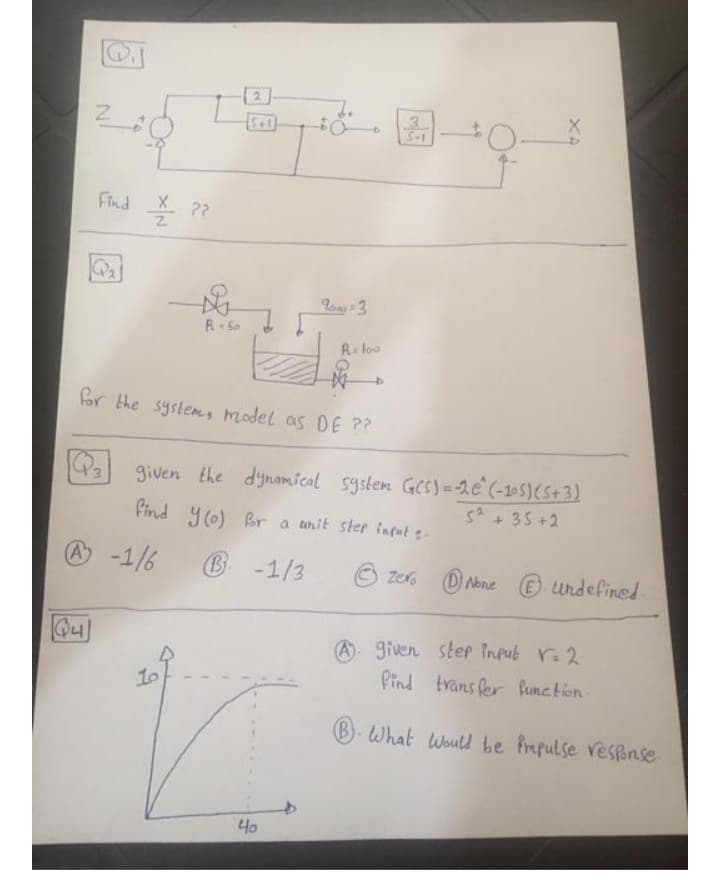 Q1
2
Z
+
S+1
+
+
3
S-1
+
X
-
-
Find X/Z ??
Q2
= 3
R = 50
R = 100
for the system, model as DE ??
Q3 given the dynamical system G(S) = -2e^(-10S)(S+3)
S² + 3S + 2
find y(0) for a unit step input :-
A -1/6 B. -1/3 C zero D None E. undefined.
Q4
A. given step input r = 2
find transfer function.
10
B. What would be impulse response.
40